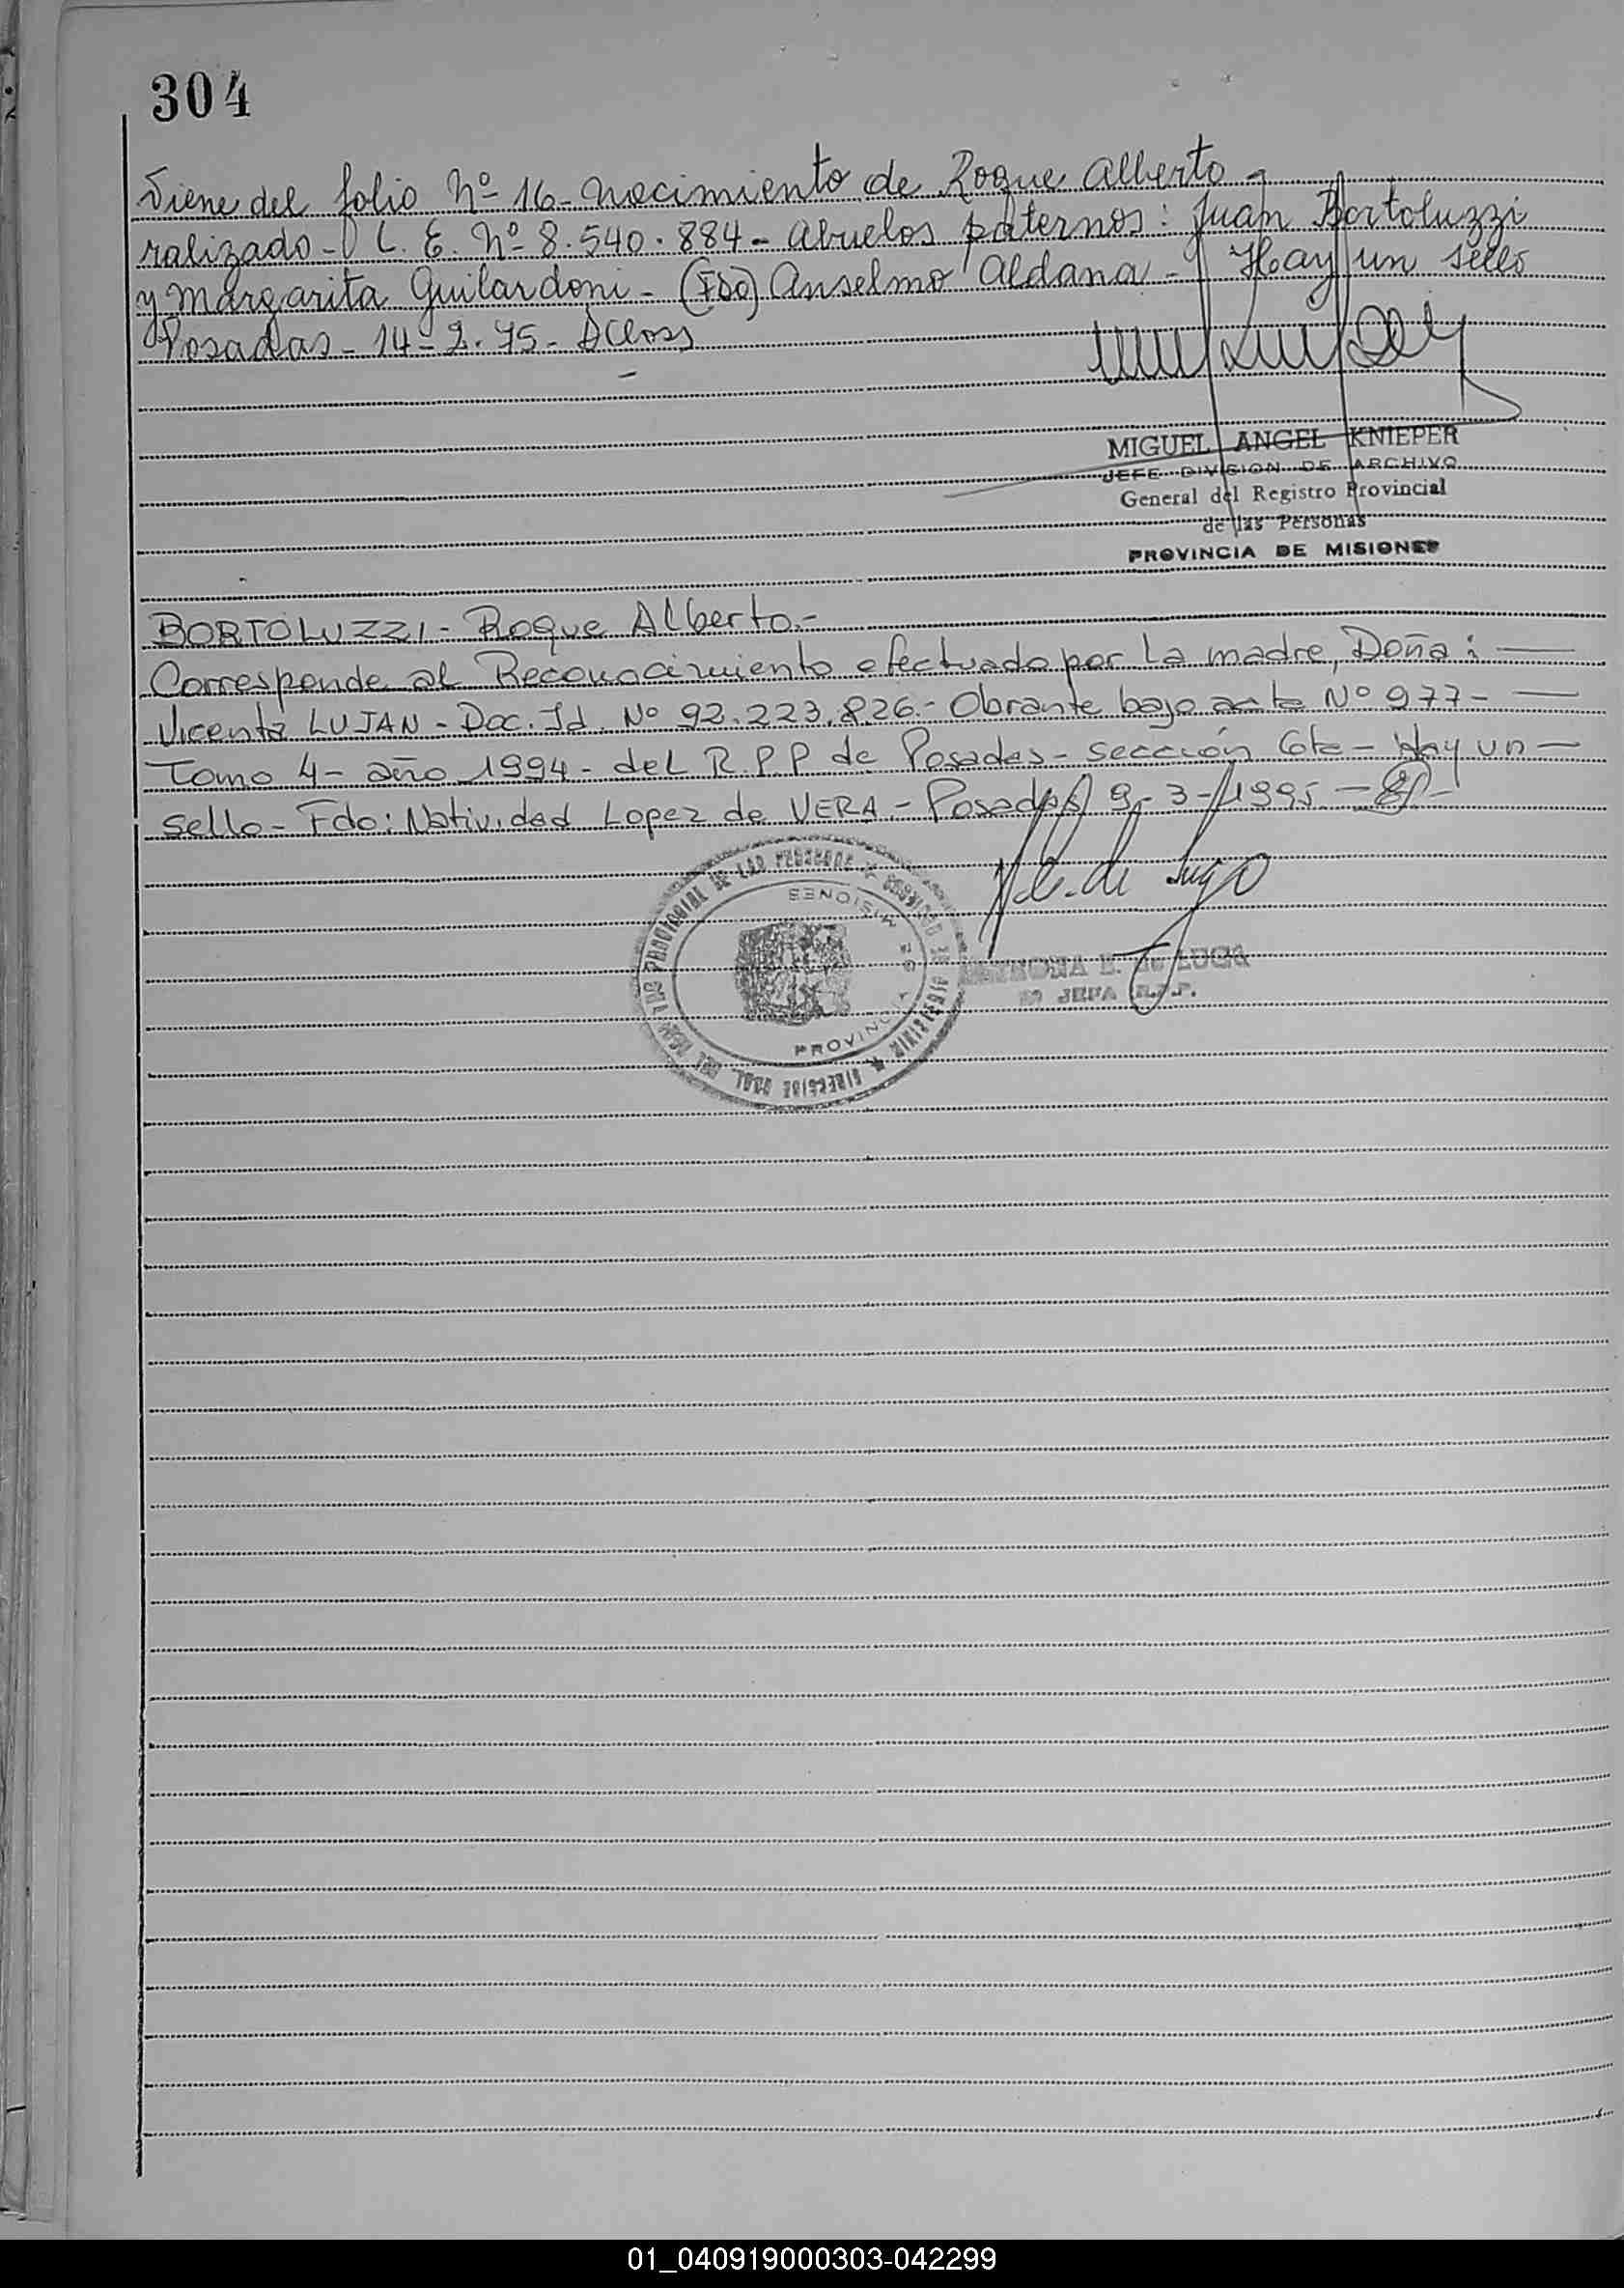 304
Viene del folio Nº 16- Nacimiento de Roque Alberto -
ralizado - L. E. Nº 8.540.884 - Abuelos paternos: Juan Bortoluzzi
y Margarita Guilardoni - (Fdo) Anselmo Aldana - Hay un sello
Posadas - 14-2-75 -
MIGUEL ANGEL KNIEPER
JEFE DIVISION DE ARCHIVO
General del Registro Provincial
de las Personas
PROVINCIA DE MISIONES
BORTOLUZZI - Roque Alberto.-
Corresponde al Reconocimiento efectuado por la madre, Doña:
Vicenta LUJAN - Doc. Id. Nº 92.223.826.- Obrante bajo acta Nº 977-
Tomo 4 - año 1994 - del R.P.P de Posadas - sección 6ta - Hay un
sello - Fdo: Natividad Lopez de VERA.- Posadas 9-3-1995.-
PROVINCIA DE MISIONES
JEFA R.P.P.
01_040919000303-042299